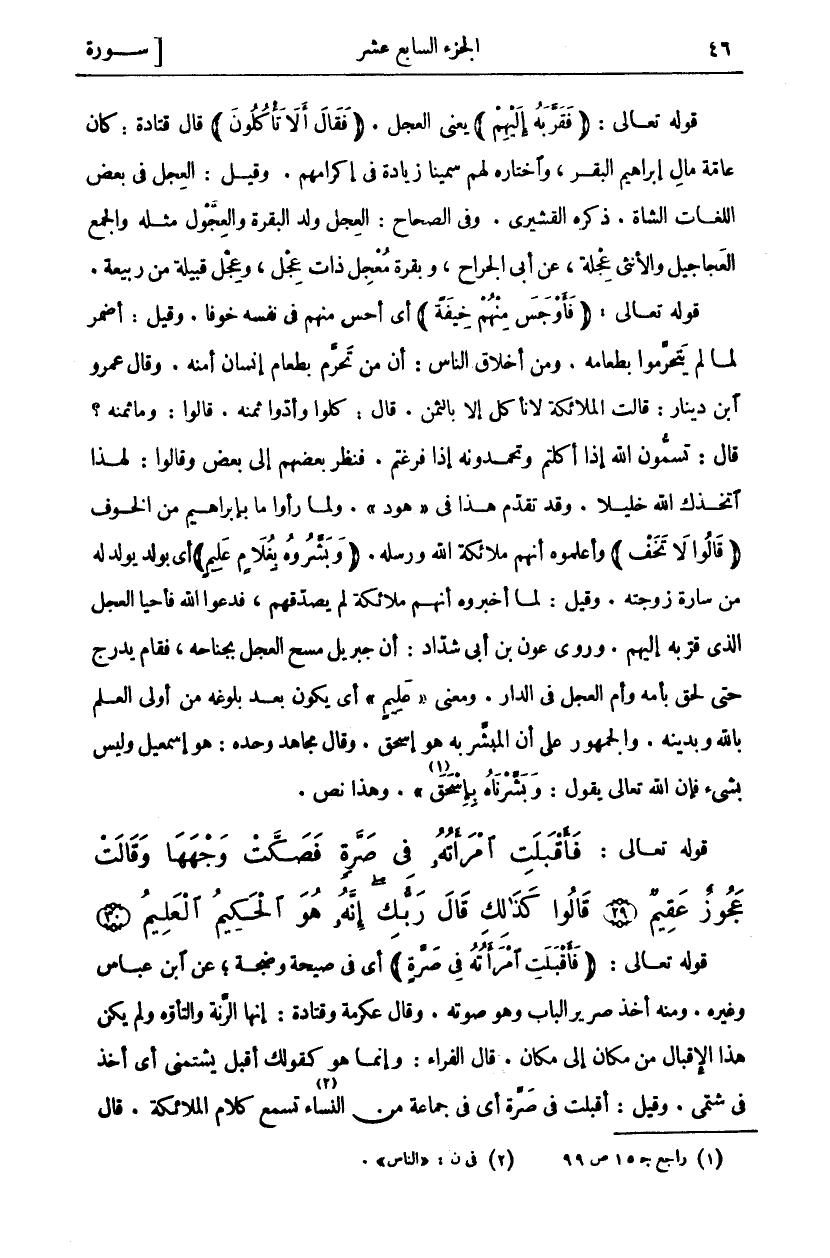 ٤٦ الجزء السابع عشر [ ســـورة
قوله تعـالى : ﴿ فَقَرَّبَهُ إِلَيْهِمْ ﴾ يعنى العجل . ﴿ فَقَالَ أَلَا تَأْكُلُونَ ﴾ قال قتادة : كان
عامّة مالِ إبراهيم البقــر ، وٱختاره لهم سمينا زيادة فى إكرامهم . وقيــل : العِجل فى بعض
اللغـات الشاة . ذكره القشيرى . وفى الصحاح : العِجل ولد البقرة والعِجَّوْل مثــله والجمع
العجاجيل والأنثى عِجْلة ، عن أبى الجراح ، وبقرة مُعْجِل ذات عِجْل ، وعِجْل قبيلة من ربيعة .
قوله تعـالى : ﴿ فَأَوْجَسَ مِنْهُمْ خِيفَةً ﴾ أى أحس منهم فى نفسه خوفا . وقيل : أضمر
لمـا لم يَتَحرَّموا بطعامه . ومن أخلاق الناس : أن من تَحَرَّم بطعام إنسان أمنه . وقال عمرو
ٱبن دينار : قالت الملائكة لا نأكل إلا بالثمن . قال : كلوا وأدّوا ثمنه . قالوا : وما ثمنه ؟
قال : تسمُّون الله إذا أكلتم وتحمدونه إذا فرغتم . فنظر بعضهم إلى بعض وقالوا : لهـذا
ٱتخـذك الله خليــلا . وقد تقدّم هـذا فى « هود » . ولمـا رأوا ما بإبراهــيم من الخـوف
﴿ قَالُوا لَا تَخَفْ ﴾ وأعلموه أنهم ملائكة الله ورسله . ﴿ وَبَشَّرُوهُ بِغُلَامٍ عَلِيمٍ ﴾ أى بولد يولد له
من سارة زوجته . وقيل : لمـا أخبروه أنهـم ملائكة لم يصدّقهم ، فدعوا الله فأحيا العجل
الذى قرّبه إليهم . وروى عون بن أبى شدّاد : أن جبريل مسح العجل بجناحه ، فقام يدرج
حتى لحق بأمه وأم العجل فى الدار . ومعنى « عَلِيمٍ » أى يكون بعـد بلوغه من أولى العـلم
بالله وبدينه . والجمهور على أن المبشَّر به هو إسحق . وقال مجاهد وحده : هو إسمعيل وليس
بشىء فإن الله تعالى يقول : وَبَشَّرْنَاهُ بِإِسْحَقَ (١) » . وهذا نص .
قوله تعـالى : فَأَقْبَلَتِ ٱمْرَأَتُهُۥ فِى صَرَّةٍ فَصَكَّتْ وَجْهَهَا وَقَالَتْ
عَجُوزٌ عَقِيمٌ ٢٩ قَالُوا كَذَٰلِكِ قَالَ رَبُّكِ إِنَّهُۥ هُوَ ٱلْحَكِيمُ ٱلْعَلِيمُ ٣٠
قوله تعـالى : ﴿ فَأَقْبَلَتِ ٱمْرَأَتُهُ فِى صَرَّةٍ ﴾ أى فى صيحة وضجة ؛ عن ٱبن عبـاس
وغيره . ومنه أخذ صرير الباب وهو صوته . وقال عكرمة وقتادة : إنها الرَّنة والتأوّه ولم يكن
هذا الإقبال من مكان إلى مكان . قال الفراء : وإنمـا هو كقولك أقبل يشتمنى أى أخذ
فى شتمى . وقيل : أقبلت فى صَرَّة أى فى جماعة من النساء (٢) تسمع كلام الملائكة . قال
(١) راجع جـ ١٥ ص ٩٩ (٢) فى ن : «الناس» .